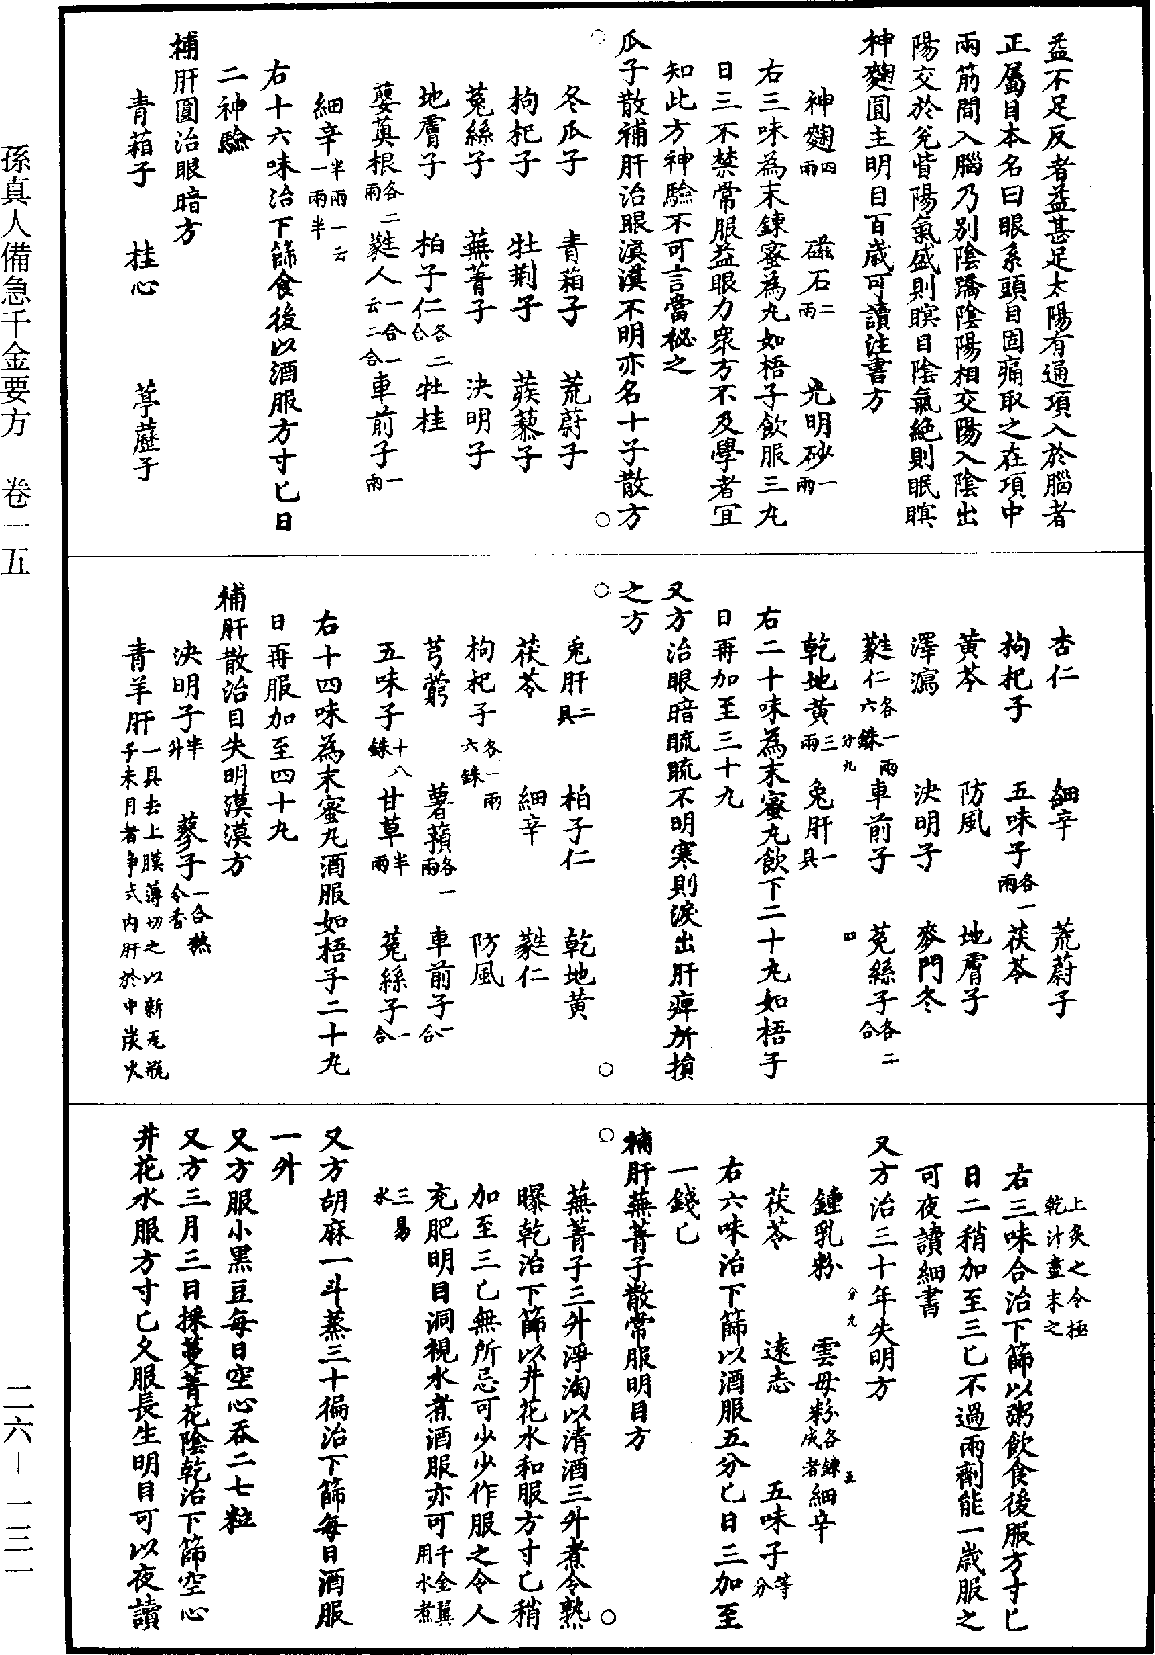 益不足反者益甚足太陽有通項入於腦者
正屬目本名曰眼系頭目固痛取之在項中
兩筋間入腦乃別陰蹻陰陽相交陽入陰出
陽交於兌眥陽氣盛則瞑目陰氣絶則眠瞑
神麴圓主明目百歲可讀注書方
神麴四兩 磁石二兩 光明砂一兩
右三味為末鍊蜜為丸如梧子飲服三丸
日三不禁常服益眼力衆方不及學者宜
知此方神驗不可言當秘之
瓜子散補肝治眼漠漠不明亦名十子散方
冬瓜子 青葙子 茺蔚子
枸杞子 牡荆子 蒺藜子
菟絲子 蕪菁子 決明子
地膚子 柏子仁各二合 牡桂
蘡薁根各二兩 蕤人一合一云二合 車前子一兩
細辛半兩一云一兩半
右十六味治下篩食後以酒服方寸匕日
二神驗
補肝圓治眼暗方
青葙子 桂心 葶藶子
杏仁 細辛 茺蔚子
枸杞子 五味子各一兩 茯苓
黃芩 防風 地膚子
澤瀉 決明子 麥門冬
蕤仁各一兩六銖 車前子 菟絲子各二合
乾地黃三兩九分 兔肝一具
右二十味為末蜜丸飲下二十丸如梧子
日再加至三十九
又方治眼暗䀮䀮不明寒則淚出肝痺所損
之方
兎肝二具 柏子仁 乾地黃
茯苓 細辛 蕤仁
枸杞子各一兩六銖 防風
芎藭 薯蕷各一兩 車前子一合
五味子十八銖 甘草半兩 菟絲子一合
右十四味為末蜜丸酒服如梧子二十丸
日再服加至四十丸
補肝散治目失明漠漠方
決明子半升 蓼子一合熬令香
青羊肝一具去上膜薄切之以新瓦瓶子未用者淨拭內肝於中炭火
上炙之令極乾汁盡末之
右三味合治下篩以粥飲食後服方寸匕
日二稍加至三匕不過兩劑能一歲服之
可夜讀細書
又方治三十年失明方
鍾乳粉 雲母粉各鍊成者 細辛
茯苓 遠志 五味子等分
右六味治下篩以酒服五分匕日三加至
一錢匕
補肝蕪菁子散常服明目方
蕪菁子三升淨淘以清酒三升煮令熟
曝乾治下篩以井花水和服方寸匕稍
加至三匕無所忌可少少作服之令人
充肥明目洞視水煮酒服亦可千金翼用水煮
三易水
又方胡麻一斗蒸三十徧治下篩每日酒服
一升
又方服小黑豆每日空心吞二七粒
又方三月三日採蔓菁花陰乾治下篩空心
井花水服方寸匕久服長生明目可以夜讀
孫真人備急千金要方 卷一五
二六—一三一